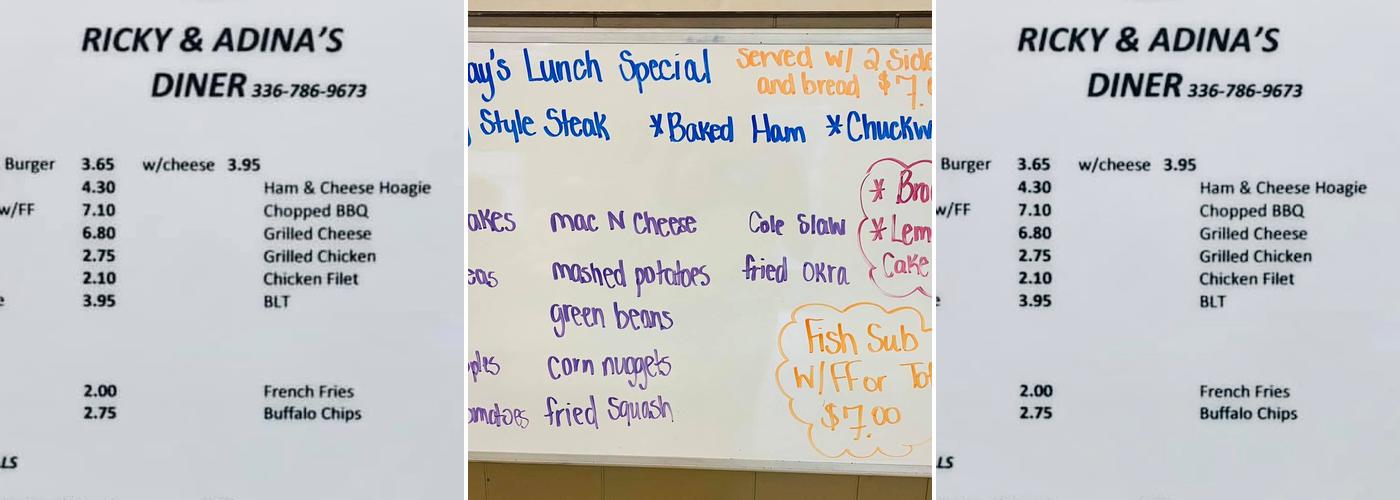 RICKY & ADINA'S
DINER 336-786-9673
Burger 3.65 w/cheese 3.95
4.30 Ham & Cheese Hoagie
w/FF 7.10 Chopped BBQ
6.80 Grilled Cheese
2.75 Grilled Chicken
2.10 Chicken Filet
3.95 BLT
2.00 French Fries
2.75 Buffalo Chips
Lunch Special Served w/ 2 Side
and bread $7.
Style Steak *Baked Ham *Chuckw
* Bro
mac N Cheese Cole Slaw
*Lem
Cake
mashed potatoes fried OKra
green beans
Fish Sub
corn nuggets
W/FF or Tot
$7.00
fried Squash
RICKY & ADINA'S
DINER 336-786-9673
Burger 3.65 w/cheese 3.95
4.30 Ham & Cheese Hoagie
w/FF 7.10 Chopped BBQ
6.80 Grilled Cheese
2.75 Grilled Chicken
2.10 Chicken Filet
3.95 BLT
2.00 French Fries
2.75 Buffalo Chips